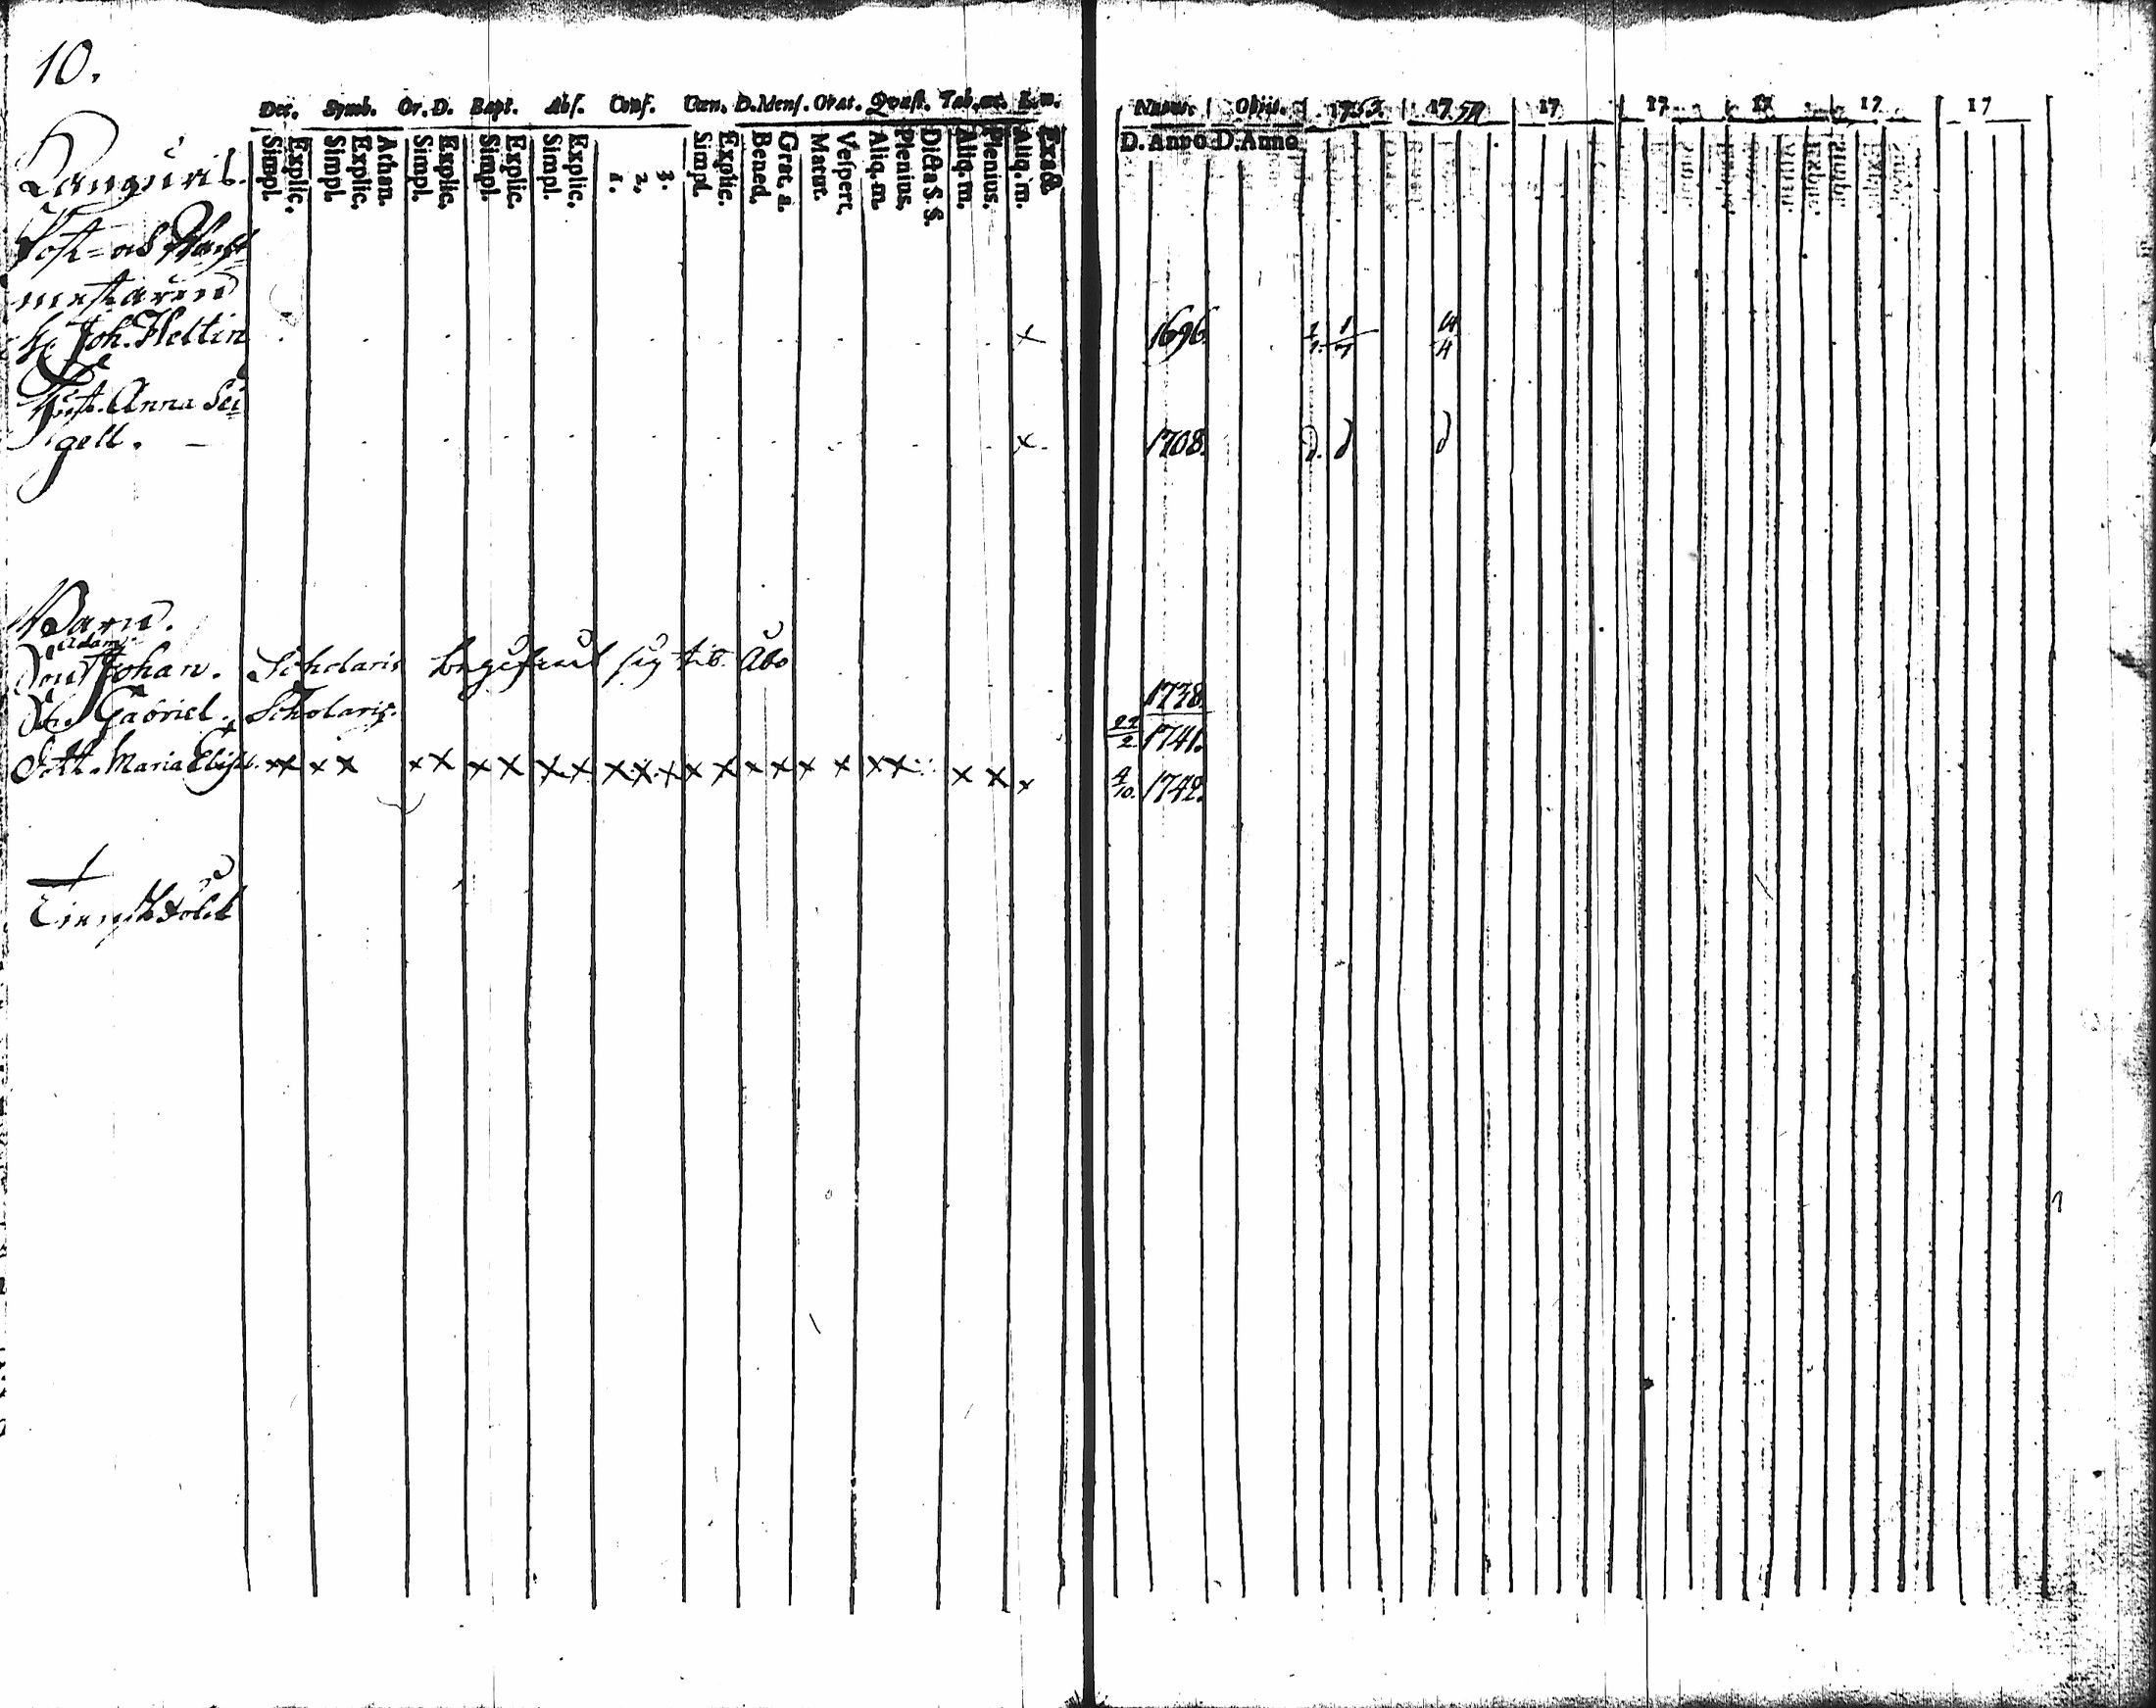 10.
Dec. Symb. Or. D. Bapt. Abs. Conf. Cœn. D. Mens. Orat. Quæst. Tab. œc. L. n.
Simpl. Explic. Simpl. Explic. Athan. Simpl. Explic. Simpl. Explic. Simpl. Explic. 1. 2. 3. Simpl. Explic. Bened. Grat. a. Matut. Vespert. Aliq. m. Plenius. Dicta S. S. Aliq. m. Plenius. Aliq. m. Exact
Natus. Obiit. 1753. 1754 17 17 17 17 17
D. Anno D. Anno
Joh. Heltin x 1696.
Hust. Anna Sei
gell. x 1708. d. d d
Barn.
Adam
Son Johan. Scholaris begifwit sig til Åbo 1738.
Gabriel. Scholaris. 22/2 1741.
Dott. Maria Elisab. xx x x x x x x x x x x x x x x x x x x x x x x x 4/10. 1742.
Tienstefolck